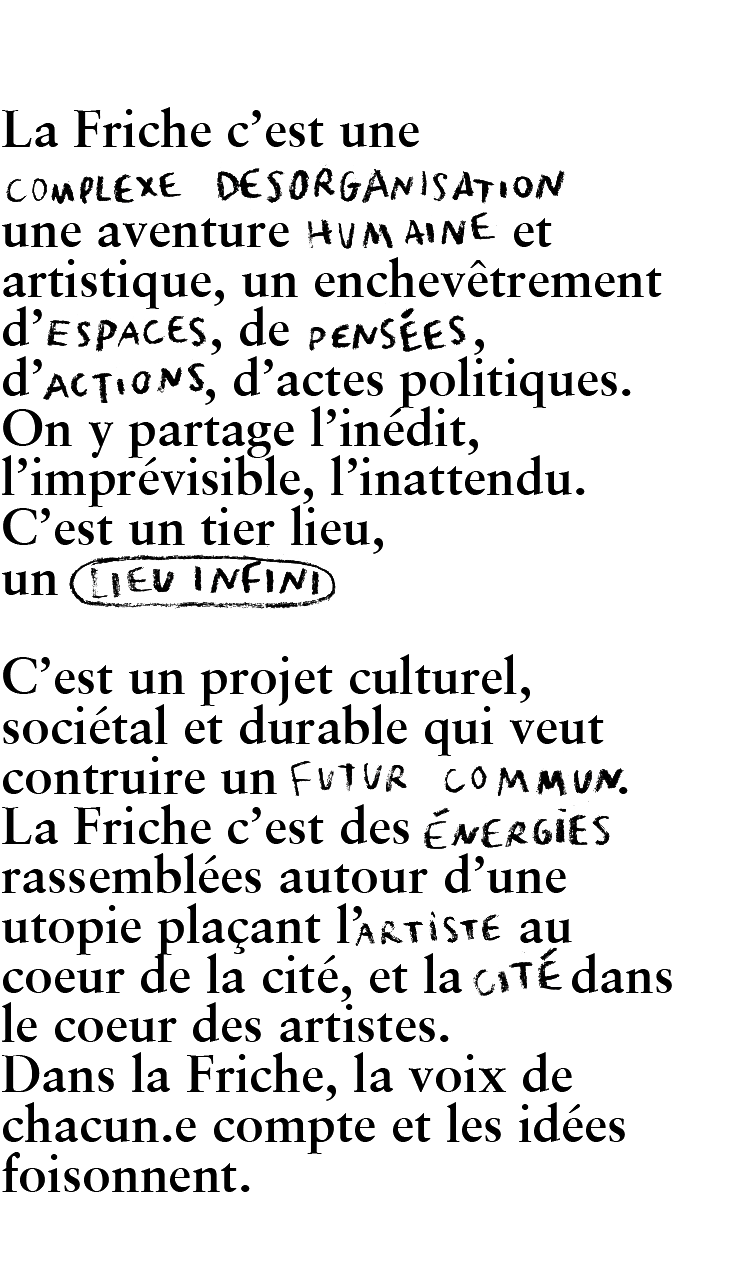 La Friche c’est une
COMPLEXE DESORGANISATION
une aventure HUMAINE et
artistique, un enchevêtrement
d’ESPACES, de PENSÉES,
d’ACTIONS, d’actes politiques.
On y partage l’inédit,
l’imprévisible, l’inattendu.
C’est un tier lieu,
un LIEU INFINI
C’est un projet culturel,
sociétal et durable qui veut
contruire un FUTUR COMMUN.
La Friche c’est des ÉNERGIES
rassemblées autour d’une
utopie plaçant l’ARTISTE au
coeur de la cité, et la CITÉ dans
le coeur des artistes.
Dans la Friche, la voix de
chacun.e compte et les idées
foisonnent.